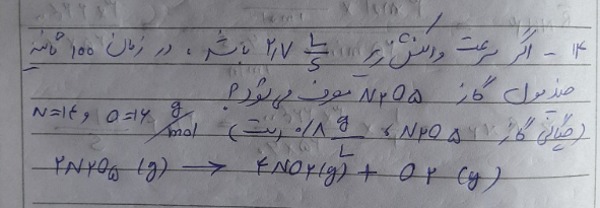 ۱۴ - اگر سرعت واکنش زیر ۲,۷ L/s باشد، در زمان ۱۰۰ ثانیه
چند مول گاز N۲O۵ مصرف می شود؟
(چگالی گاز N۲O۵، ۰/۸ g/L است) N=۱۴ و O=۱۶ g/mol
۲N۲O۵ (g) → ۴NO۲(g) + O۲ (g)